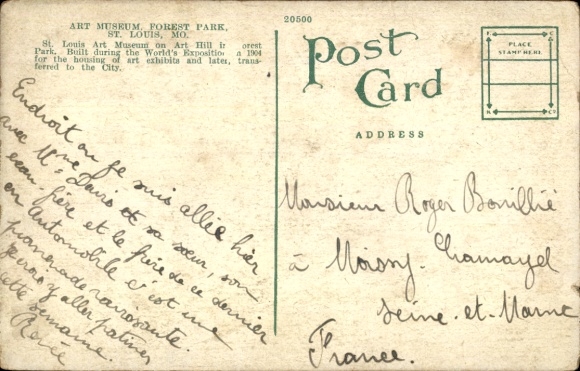 ART MUSEUM, FOREST PARK,
ST. LOUIS, MO.
St. Louis Art Museum on Art Hill in orest
Park. Built during the World's Exposition 1904
for the housing of art exhibits and later, trans-
ferred to the City.
20500
Post
Card
PLACE
STAMP HERE
ADDRESS
Endroit ou je suis allée hier
avec Mme Davis et sa sœur, son
beau frère et le frère de ce dernier
en automobile c'est une
promenade ravissante.
Je vais y aller patiner
cette semaine.
Renée
Monsieur Roger Bouillié
à Moissy-Cramayel
Seine-et-Marne
France.